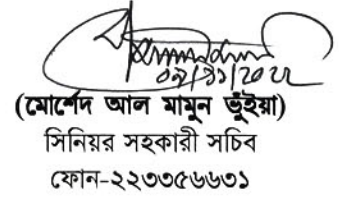 ০৯/১১/২০২২
(মোর্শেদ আল মামুন ভূঁইয়া)
সিনিয়র সহকারী সচিব
ফোন-২২৩৩৫৬৬৩১